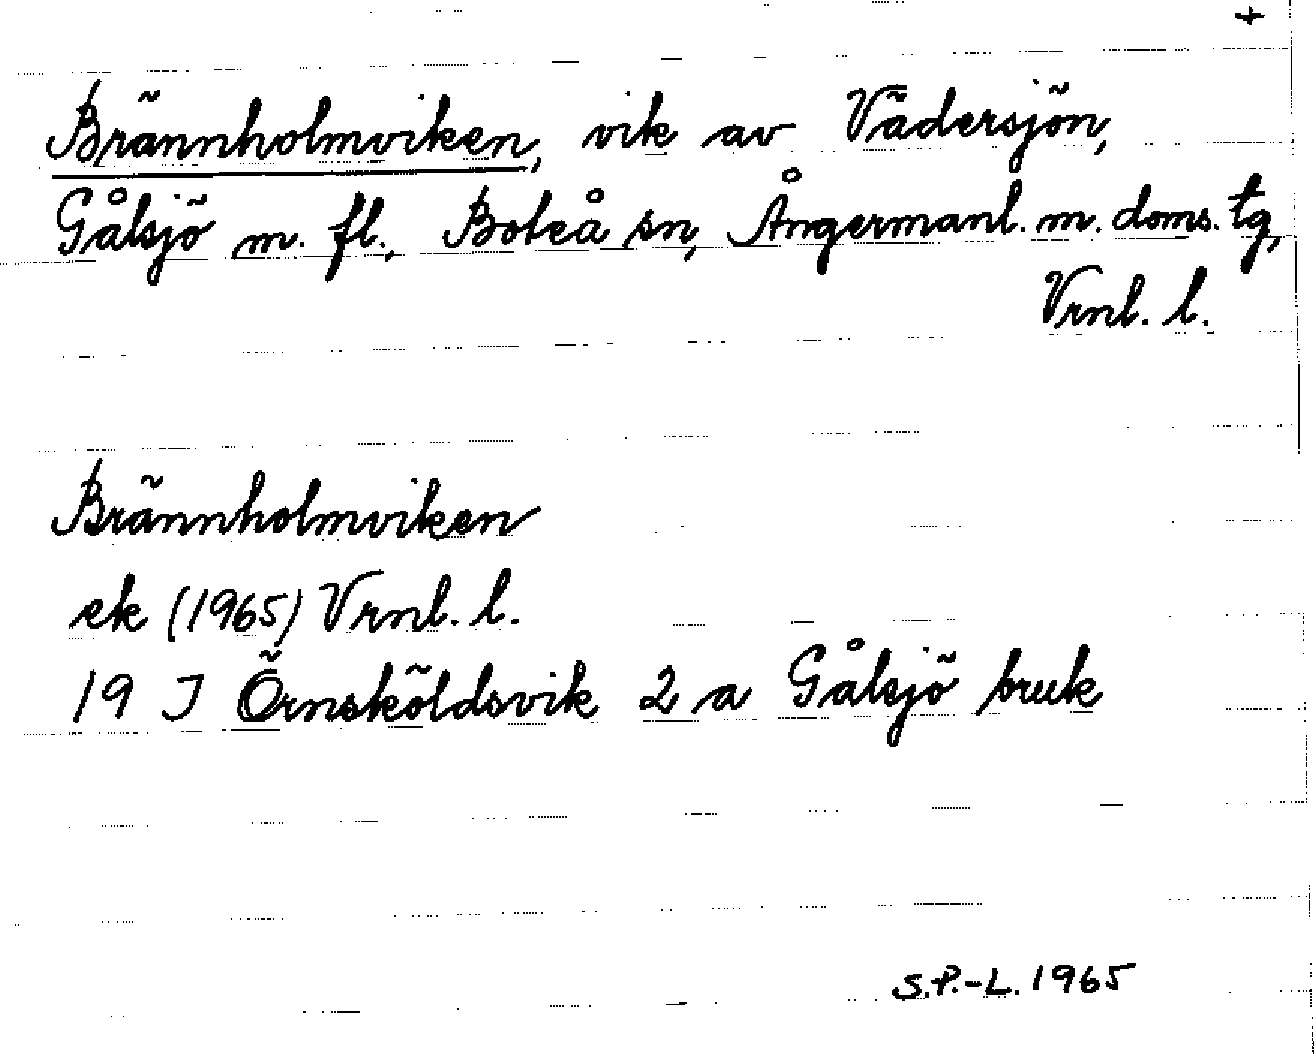 +
Brännholmviken, vik av Vädersjön,
Gålsjö m. fl., Boteå sn, Ångermanl. m. doms. tg,
Vrnl. l.
Brännholmviken
ek (1965) Vrnl. l.
19 J Örnsköldsvik 2 a Gålsjö bruk
S.P.-L. 1965